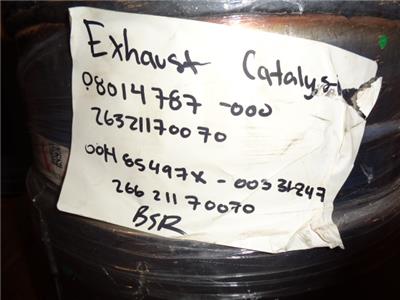 Exhaust Catalys
08014787-000
26321170070
00H65497X-00331247
26621170070
BSR